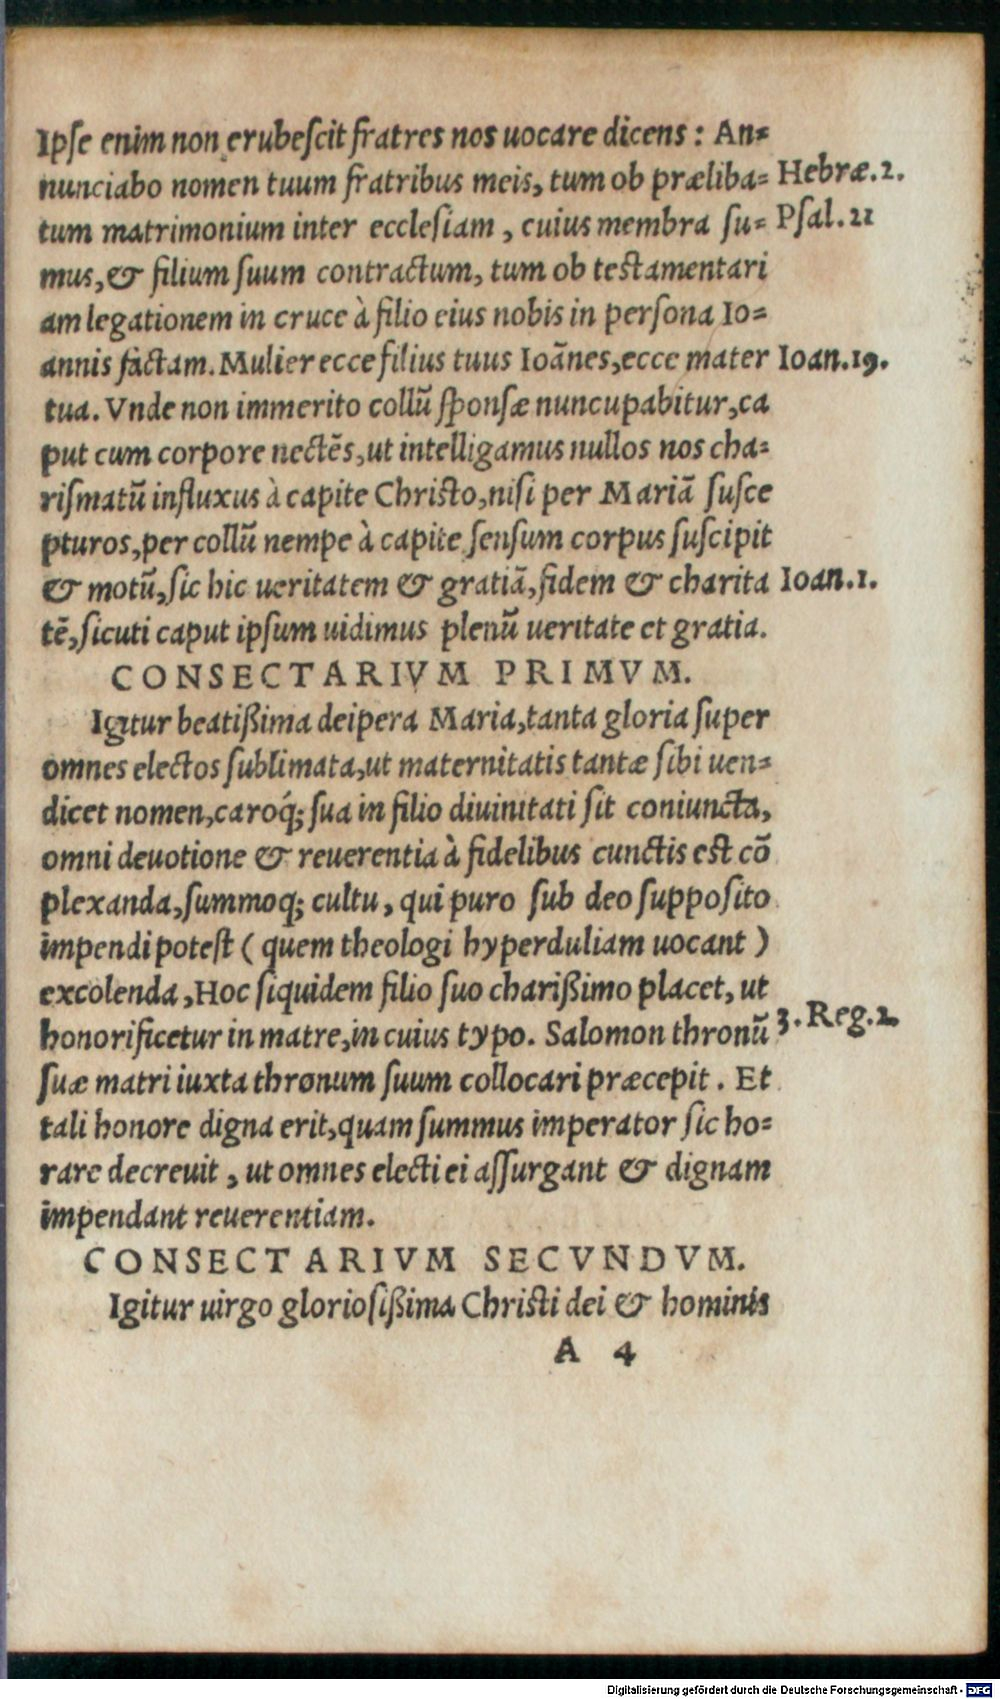 Ipſe enim non erubeſcit fratres nos uocare dicens: An=
nunciabo nomen tuum fratribus meis, tum ob præliba= Hebræ.2.
tum matrimonium inter eccleſiam, cuius membra ſu= Pſal.21
mus, & filium ſuum contractum, tum ob teſtamentari
am legationem in cruce à filio eius nobis in perſona Io=
annis factam. Mulier ecce filius tuus Ioãnes, ecce mater Ioan.19.
tua. Vnde non immerito collũ ſponſæ nuncupabitur, ca
put cum corpore nectẽs, ut intelligamus nullos nos cha=
riſmatũ influxus à capite Chriſto, niſi per Mariã ſuſce
pturos, per collũ nempe à capite ſenſum corpus ſuſcipit
& motũ, ſic hic ueritatem & gratiã, fidem & charita Ioan.1.
tẽ, ſicuti caput ipſum uidimus plenũ ueritate et gratia.
CONSECTARIVM PRIMVM.
Igitur beatißima deipera Maria, tanta gloria ſuper
omnes electos ſublimata, ut maternitatis tantæ ſibi uen=
dicet nomen, caroq́; ſua in filio diuinitati ſit coniuncta,
omni deuotione & reuerentia à fidelibus cunctis eſt cõ
plexanda, ſummoq; cultu, qui puro ſub deo ſuppoſito
impendi poteſt (quem theologi hyperduliam uocant)
excolenda, Hoc ſiquidem filio ſuo charißimo placet, ut
honorificetur in matre, in cuius typo. Salomon thronũ 3.Reg.2.
ſuæ matri iuxta thronum ſuum collocari præcepit. Et
tali honore digna erit, quam ſummus imperator ſic ho=
rare decreuit, ut omnes electi ei aſſurgant & dignam
impendant reuerentiam.
CONSECTARIVM SECVNDVM.
Igitur uirgo glorioſißima Chriſti dei & hominis
A 4
Digitalisierung gefördert durch die Deutsche Forschungsgemeinschaft - DFG